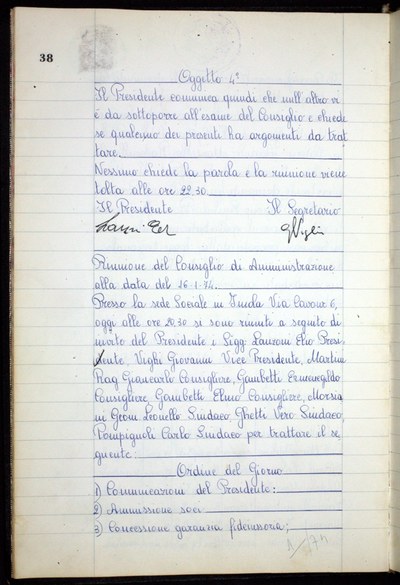 38
Oggetto 4°
Il Presidente comunica quindi che null'altro vi
è da sottoporre all'esame del Consiglio e chiede
se qualcuno dei presenti ha argomenti da trat
tare.
Nessuno chiede la parola e la riunione viene
tolta alle ore 22.30
Il Presidente Il Segretario
Riunione del Consiglio di Amministrazione
alla data del 16.1.74.
Presso la sede Sociale in Imola Via Cavour 6,
oggi alle ore 20.30 si sono riuniti a seguito di
invito del Presidente i Sigg. Lanzoni Elio Presi
dente, Vighi Giovanni Vice Presidente, Martini
Rag Giancarlo Consigliere, Gambetti Ermenegildo
Consigliere, Gambetti Elmo Consigliere, Morsia
ni Geom Leonello Sindaco, Ghetti Vero Sindaco,
Pompignoli Carlo Sindaco per trattare il se
guente:
Ordine del Giorno
1) Comunicazioni del Presidente:
2) Ammissione soci
3) Concessione garanzia fidejussoria;
1/74